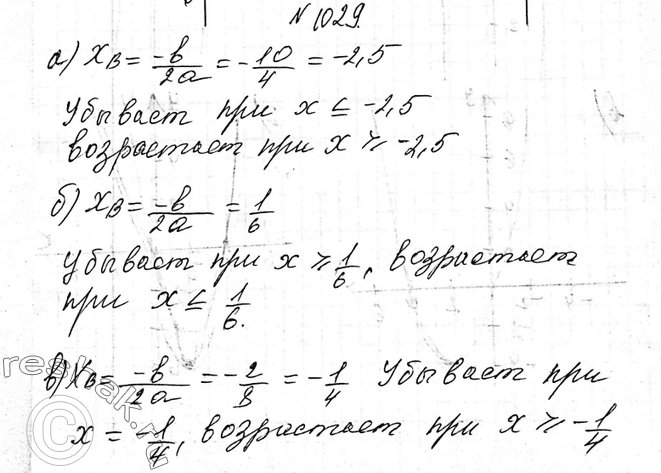 № 1029.
а) xв = -в/2a = -10/4 = -2,5
Убывает при x ≤ -2,5
возрастает при x ≥ -2,5
б) xв = -в/2a = 1/6
Убывает при x ≥ 1/6, возрастает
при x ≤ 1/6.
в) xв = -в/2a = -2/8 = -1/4 Убывает при
x = -1/4, возрастает при x ≥ -1/4
©reshak.ru